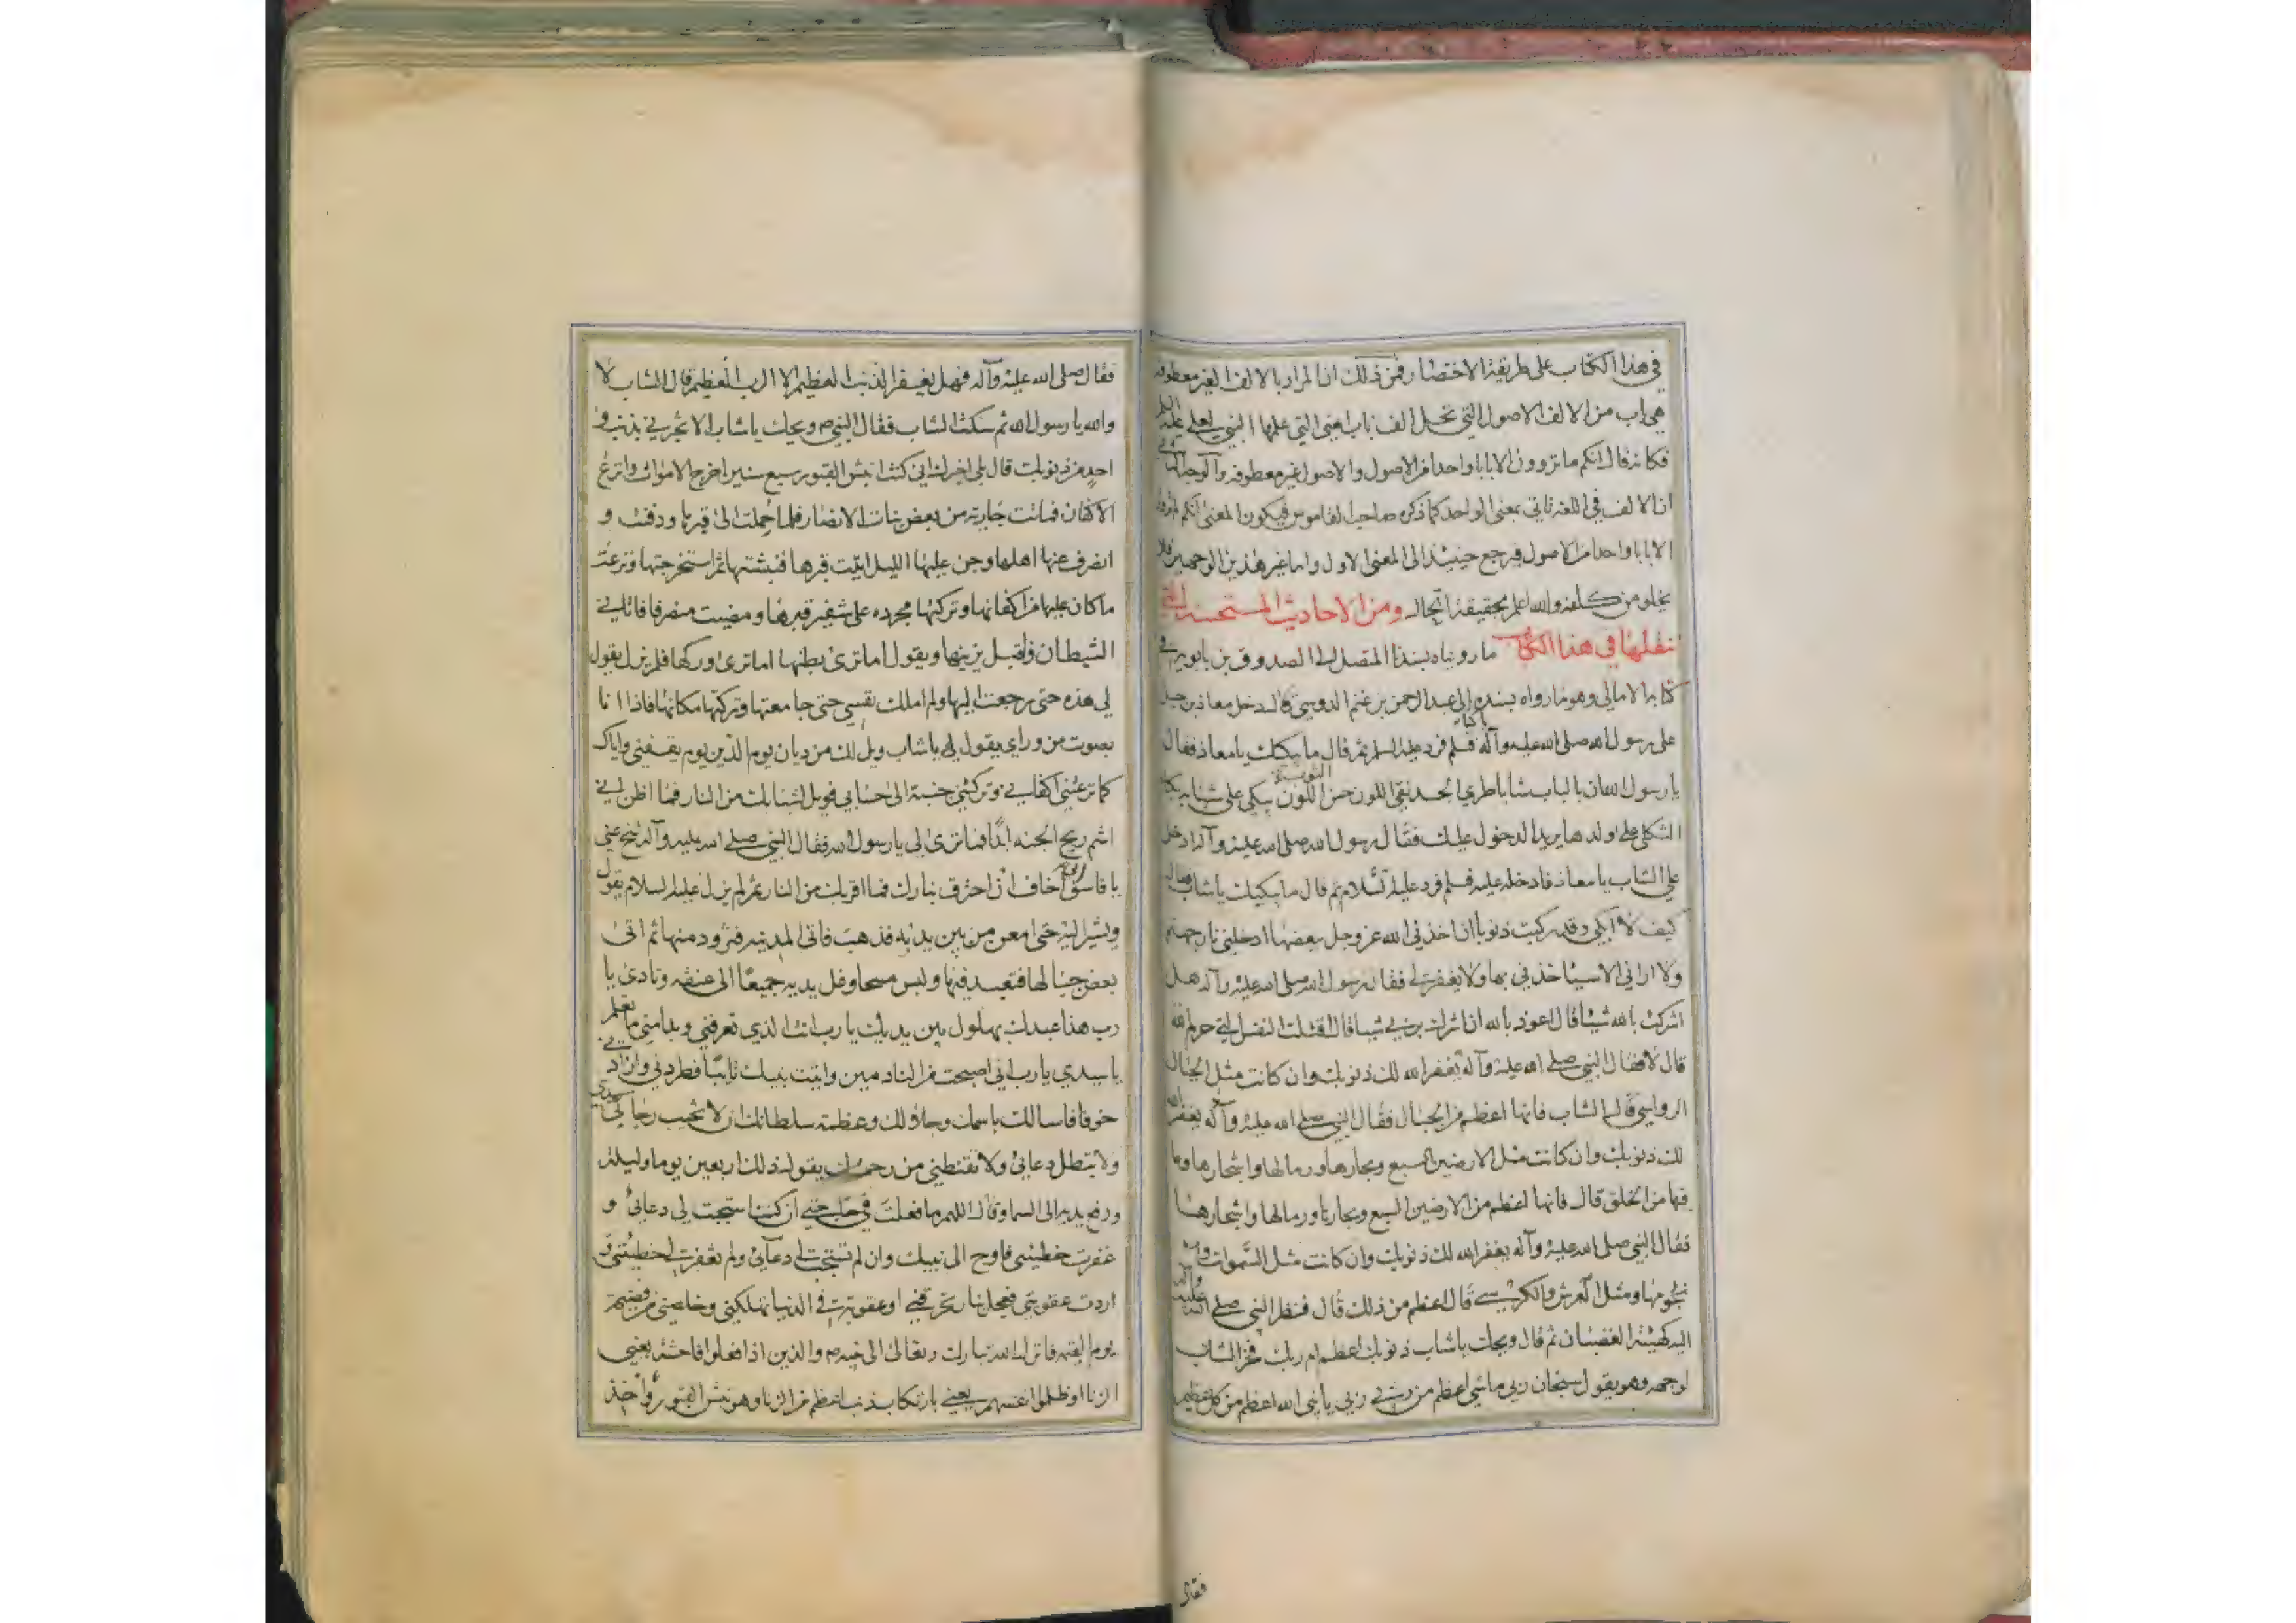 في هذا الكتاب على طريقة الاختصار فمن ذلك ان المراد بالالف الغير معطوفة
هي باب من الالف الاصول التي تحل الف باب اعني التي علمها النبي لعلي عليه السلم
فكانه قال انكم ما تروون الا بابا واحدا من الاصول والاصول غير معطوفة والوجه الثاني
ان الالف في اللغة تاتي بمعنى الواحد كما ذكره صاحب القاموس فيكون المعنى انكم
الا بابا واحدا من الاصول فيرجع حينئذ الى المعنى الاول واما غير هذين الوجهين فلا
يخلو من كلفة والله اعلم بحقيقة الحال ومن الاحاديث المستحسنة التي
ننقلها في هذا الكتاب ما رويناه بسندنا المتصل الى الصدوق بن بابويه في
كتابه الامالي وهو ما رواه بسنده الى عبد الرحمن بن غنم الدوسي قال دخل معاذ بن جبل
على رسول الله صلى الله عليه وآله باكيا فسلم فرد عليه السلم ثم قال ما يبكيك يا معاذ فقال
يا رسول الله ان بالباب شابا طري الجسد نقي اللون حسن اللون الصورة يبكي على شبابه بكاء
الثكلى على ولدها يريد الدخول عليك فقال رسول الله صلى الله عليه وآله ادخل
علي الشاب يا معاذ فادخله عليه فسلم فرد عليه السلام ثم قال ما يبكيك يا شاب فقال
كيف لا ابكي وقد ركبت ذنوبا ان اخذني الله عز وجل ببعضها ادخلني نار جهنم
ولا اراني الا سياخذني بها ولا يغفر لي فقال رسول الله صلى الله عليه وآله هل
اشركت بالله شيئا قال اعوذ بالله ان اشرك بربي شيئا قال اقتلت النفس التي حرم الله
قال لا فقال النبي صلى الله عليه وآله يغفر الله لك ذنوبك وان كانت مثل الجبال
الرواسي قال الشاب فانها اعظم من الجبال فقال النبي صلى الله عليه وآله يغفر الله
لك ذنوبك وان كانت مثل الارضين السبع وبحارها ورمالها واشجارها وما
فيها من الخلق قال فانها اعظم من الارضين السبع وبحارها ورمالها واشجارها
فقال النبي صلى الله عليه وآله يغفر الله لك ذنوبك وان كانت مثل السموات و
نجومها ومثل العرش والكرسي قال اعظم من ذلك قال فنظر النبي صلى الله عليه وآله
اليه كهيئة الغضبان ثم قال ويحك يا شاب ذنوبك اعظم ام ربك فخر الشاب
لوجهه وهو يقول سبحان ربي ما شي اعظم من ربي ربي يا نبي الله اعظم من كل عظيم
فقال
فقال صلى الله عليه وآله فهل يغفر الذنب العظيم الا الرب العظيم قال الشاب لا
والله يا رسول الله ثم سكت الشاب فقال النبي ص ويحك يا شاب الا تخبرني بذنب و
احد من ذنوبك قال بلى اخبرك اني كنت انبش القبور سبع سنين اخرج الاموات وانزع
الاكفان فماتت جارية من بعض بنات الانصار فلما حملت الى قبرها ودفنت و
انصرف عنها اهلها وجن عليها الليل اتيت قبرها فنبشتها ثم استخرجتها ونزعت
ما كان عليها من اكفانها وتركتها مجرده على شفير قبرها ومضيت منصرفا فاتاني
الشيطان فاقبل يزينها ويقول اما ترى بطنها اما ترى وركها فلم يزل يقول
لي هذه حتى رجعت اليها ولم املك نفسي حتى جامعتها وتركتها مكانها فاذا انا
بصوت من وراي يقول لي يا شاب ويل لك من ديان يوم الدين يوم يقفني واياك
كما نزعتني اكفاني وتركتني جنبة الى حسابي فويل لشبابك من النار فما اظن اني
اشم ريح الجنه ابدا فما ترى لي يا رسول الله فقال النبي صلى الله عليه وآله تنح عني
يا فاسق اخاف ان احترق بنارك فما اقربك من النار ثم لم يزل عليه السلام يقول
ويشير اليه حتى امعن من بين يديه فذهب فاتى المدينه فتزود منها ثم اتى
بعض جبالها فتعبد فيها ولبس مسحا وغل يديه جميعا الى عنقه ونادى يا
رب هذا عبدك بهلول بين يديك يا رب انت الذي تعرفني وبدا مني ما تعلم
يا سيدي يا رب اني اصبحت من النادمين واتيت نبيك تائبا فطردني وزاد
خوفا فاسالك باسمك وجلالك وعظمة سلطانك ان لا تخيب رجائي سيدي
ولا تبطل دعائي ولا تقنطني من رحمتك يقول ذلك اربعين يوما وليلة
ورفع يديه الى السما وقال اللهم ما فعلت في حاجتي ان كنت استجبت لي دعائي و
غفرت خطيئتي فاوح الى نبيك وان لم تستجب لي دعائي ولم تغفر لي خطيئتي و
اردت عقوبتي فعجل نار تحرقني او عقوبة في الدنيا تهلكني وخلصني من فضيحة
يوم القيمه فانزل الله تبارك وتعالى الى نبيه ص والذين اذا فعلوا فاحشة يعني
الزنا او ظلموا انفسهم يعني بارتكاب ذنب اعظم من الزنا وهو نبش القبور واخذ